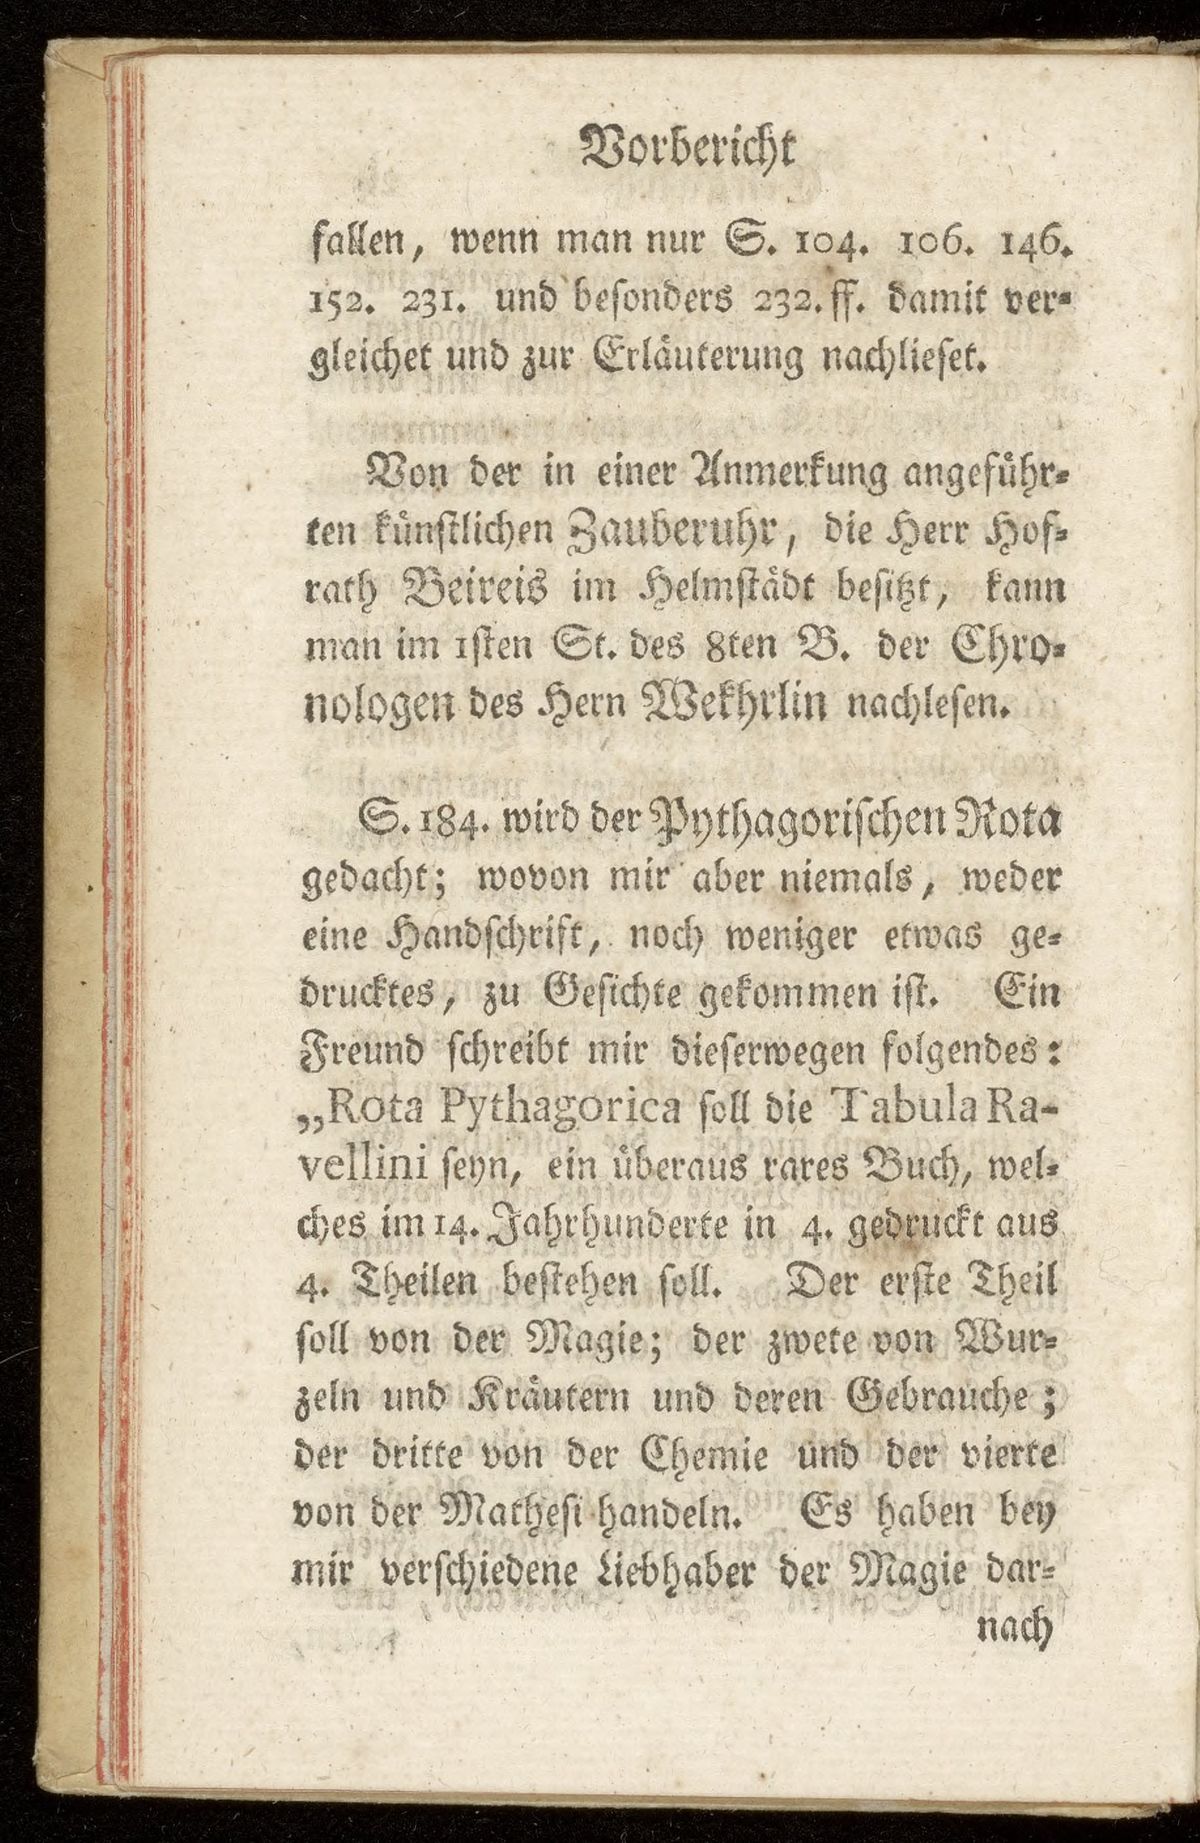 Vorbericht
fallen, wenn man nur S. 104. 106. 146.
152. 231. und besonders 232. ff. damit ver-
gleichet und zur Erläuterung nachlieset.
Von der in einer Anmerkung angeführ-
ten künstlichen Zauberuhr, die Herr Hof-
rath Beireis im Helmstädt besitzt, kann
man im 1sten St. des 8ten B. der Chro-
nologen des Hern Wekhrlin nachlesen.
S. 184. wird der Pythagorischen Rota
gedacht; wovon mir aber niemals, weder
eine Handschrift, noch weniger etwas ge-
drucktes, zu Gesichte gekommen ist. Ein
Freund schreibt mir dieserwegen folgendes:
„Rota Pythagorica soll die Tabula Ra-
vellini seyn, ein überaus rares Buch, wel-
ches im 14. Jahrhunderte in 4. gedruckt aus
4. Theilen bestehen soll. Der erste Theil
soll von der Magie; der zwete von Wur-
zeln und Kräutern und deren Gebrauche;
der dritte von der Chemie und der vierte
von der Mathesi handeln. Es haben bey
mir verschiedene Liebhaber der Magie dar-
nach